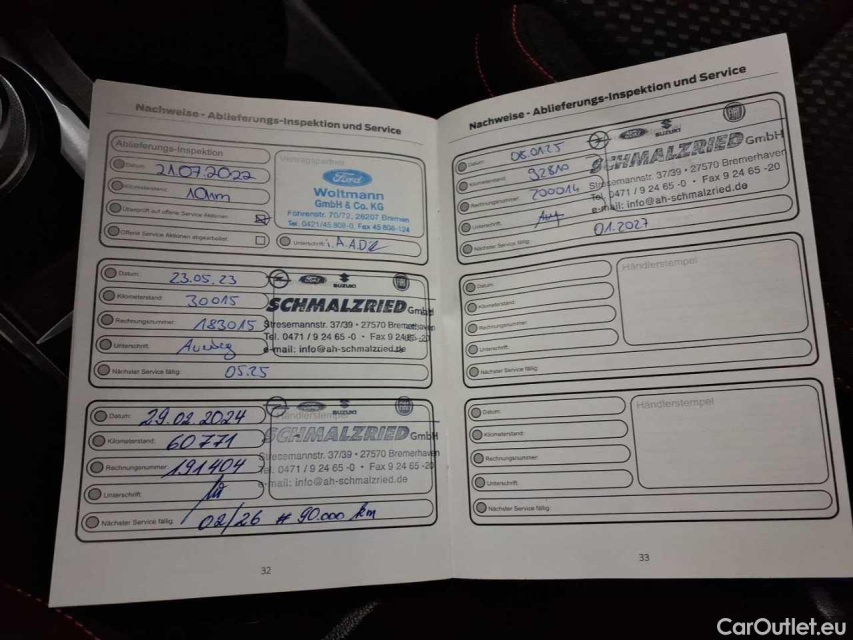 Nachweise - Ablieferungs-Inspektion und Service
Ablieferungs-Inspektion
Datum: 21.07.2022
Kilometerstand: 10km
Überprüft auf offene Service Aktionen
Offene Service Aktionen abgearbeitet:
Vertragspartner
Ford
Woltmann
GmbH & Co. KG
Föhrenstr. 70/72, 28207 Bremen
Unterschrift: i.A.
Datum: 23.05.23
Kilometerstand: 30015
Rechnungsnummer: 183015
Unterschrift:
Nächster Service fällig: 05.25
Ford SUZUKI
SCHMALZRIED GmbH
Stresemannstr. 37/39 • 27570 Bremerhaven
Tel. 0471 / 9 24 65 -0 • Fax 9 24 65 -20
e-mail: info@ah-schmalzried.de
Datum: 29.02.2024
Kilometerstand: 60771
Rechnungsnummer: 191404
Unterschrift:
Nächster Service fällig: 02/26 # 90.000 km
Händlerstempel
Ford SUZUKI
SCHMALZRIED GmbH
Stresemannstr. 37/39 • 27570 Bremerhaven
Tel. 0471 / 9 24 65 -0 • Fax 9 24 65 -20
e-mail: info@ah-schmalzried.de
32
Nachweise - Ablieferungs-Inspektion und Service
Datum: 08.01.25
Kilometerstand: 92810
Rechnungsnummer: 200014
Unterschrift:
Nächster Service fällig: 01.2027
Ford SUZUKI
SCHMALZRIED GmbH
Stresemannstr. 37/39 • 27570 Bremerhaven
Tel. 0471 / 9 24 65 -0 • Fax 9 24 65 -20
e-mail: info@ah-schmalzried.de
Datum:
Kilometerstand:
Rechnungsnummer:
Unterschrift:
Nächster Service fällig:
Händlerstempel
Datum:
Kilometerstand:
Rechnungsnummer:
Unterschrift:
Nächster Service fällig:
Händlerstempel
33
CarOutlet.eu